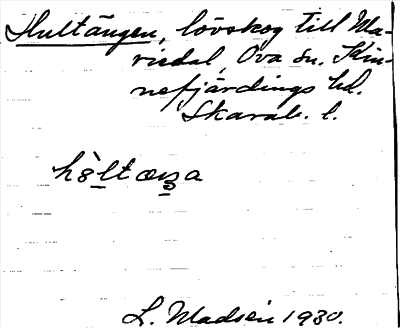 Hultängen, lövskog till Ma-
riedal, Ova sn. Kin-
nefjärdings hd.
Skarab. l.
L. Madsén 1930.